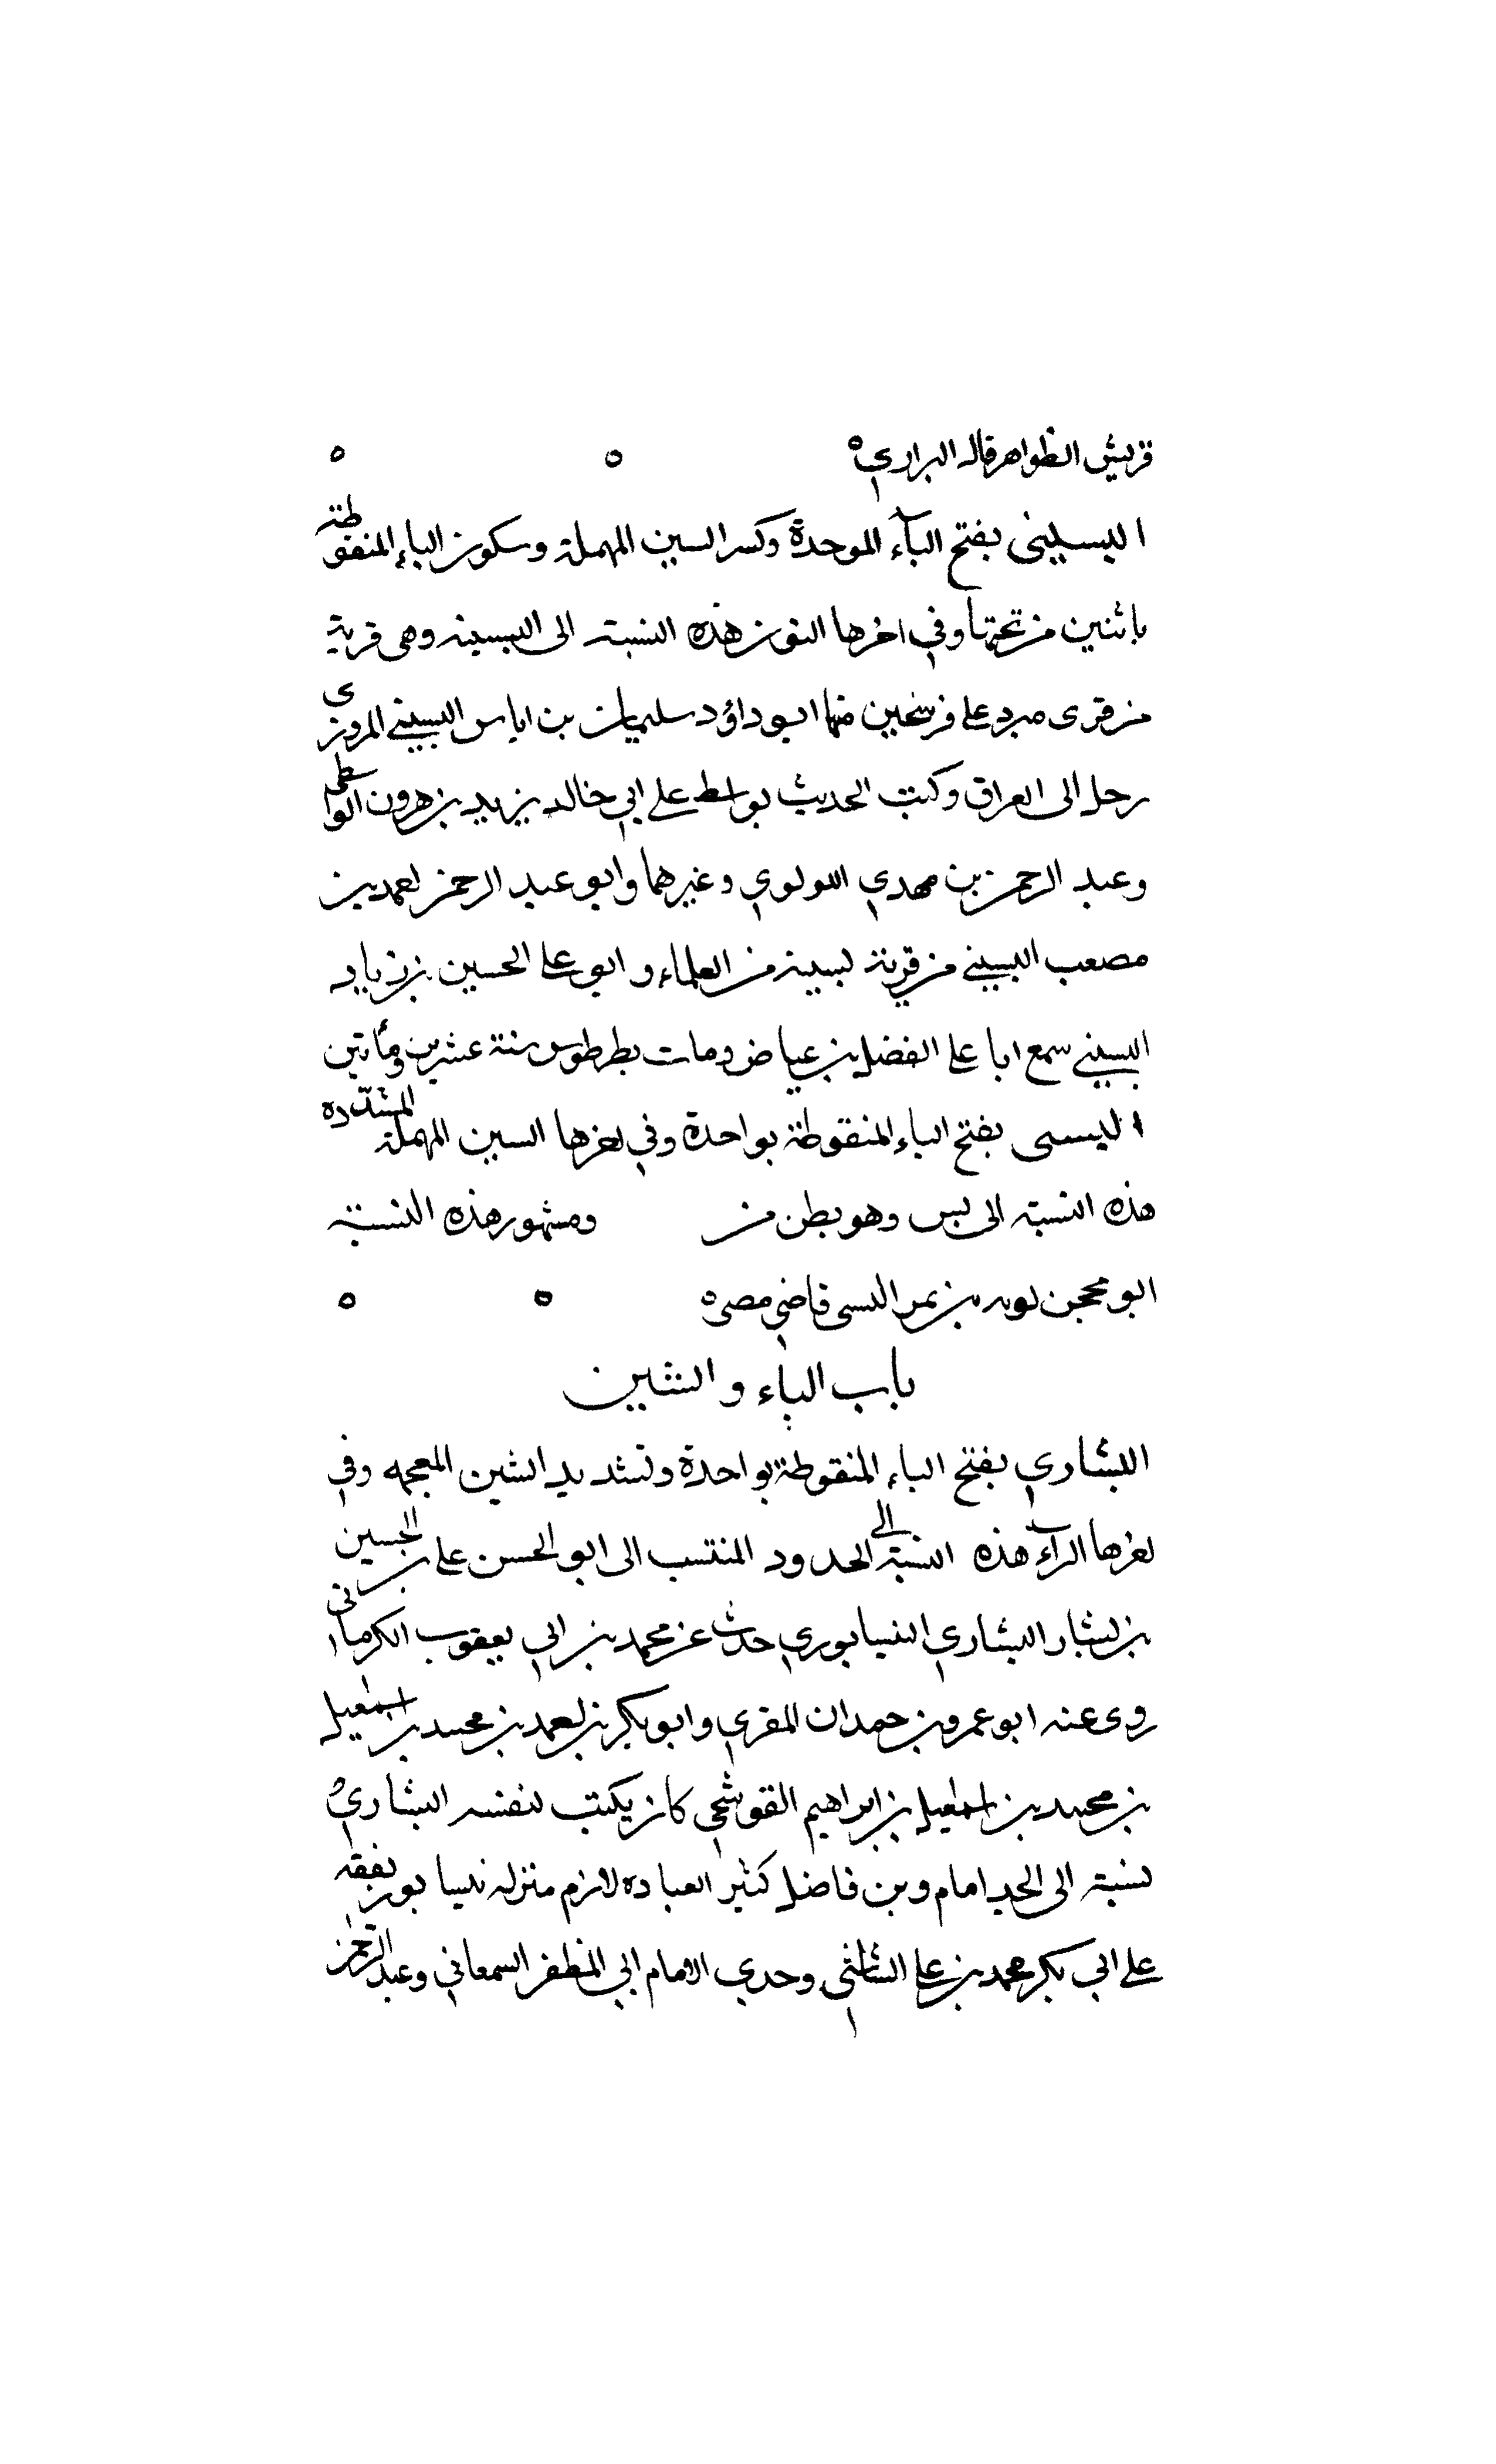 قريش الظواهر قاله البراري ه ه ه
البسينى بفتح الباء الموحدة وكسر السين المهملة وسكون الياء المنقوطة
باثنين من تحتها وفي اخرها النون هذه النسبة الى البسينه وهى قرية
من قرى مرو على فرسخين منها ابو داؤد سليمان بن اياس البسيني المروزى
رحل الى العراق وكتب الحديث بواسط على ابي خالد يزيد بن هرون الواسطى
وعبد الرحمن بن مهدي اللولوي وغيرهما وابو عبد الرحمن احمد بن
مصعب البسيني من قرية بسينة من العلماء و ابو على الحسين بن زياد
البسيني سمع ابا على الفضيل بن عياض ومات بطرطوس سنة عشرين ومأتين
البسى بفتح الباء المنقوطة بواحدة وفي اخرها السين المهملة المشدده
هذه النسبة الى بس وهو بطن من ومشهور هذه النسبة
ابو محجن توبه بن نمر البسى قاضي مصر ه ه ه
باب الباء والشين
البشاري بفتح الباء المنقوطة بواحدة وتشديد الشين المعجمه وفي
اخرها الراء هذه النسبة الى الجدود المنتسب الى ابو الحسن على بن الحسين
بن بشار البشاري النيسابوري حدث عن محمد بن ابي يعقوب الكرمانى
روى عنه ابو عمرو بن حمدان المقري وابو بكر بن احمد بن محمد بن اسمعيل
بن محمد بن اسمعيل بن ابراهيم القوشجي كان يكتب لنفسه البشاري ه
نسبة الى الجد امام وبن فاضل كثير العباده لازم منزله نيسابور تفقه
على ابي بكر محمد بن على الشاشى وجدي الامام ابي المظفر السمعاني وعبد الرحمن